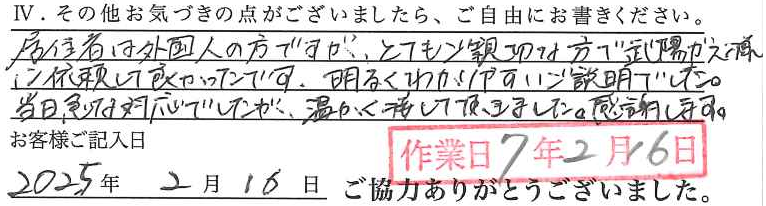 Ⅳ．その他お気づきの点がございましたら、ご自由にお書きください。
居住者は外国人の方ですが、とてもご親切な方で武陽ガス様
に依頼して良かったです。明るくわかりやすいご説明でした。
当日急な対応でしたが、温かく接して頂きました。感謝します。
お客様ご記入日
作業日 7年2月16日
2025年 2月16日 ご協力ありがとうございました。